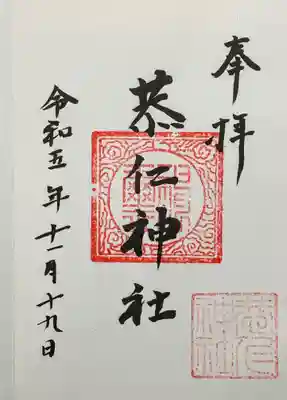 奉拝
恭仁神社
令和五年十一月十九日
恭仁
神社